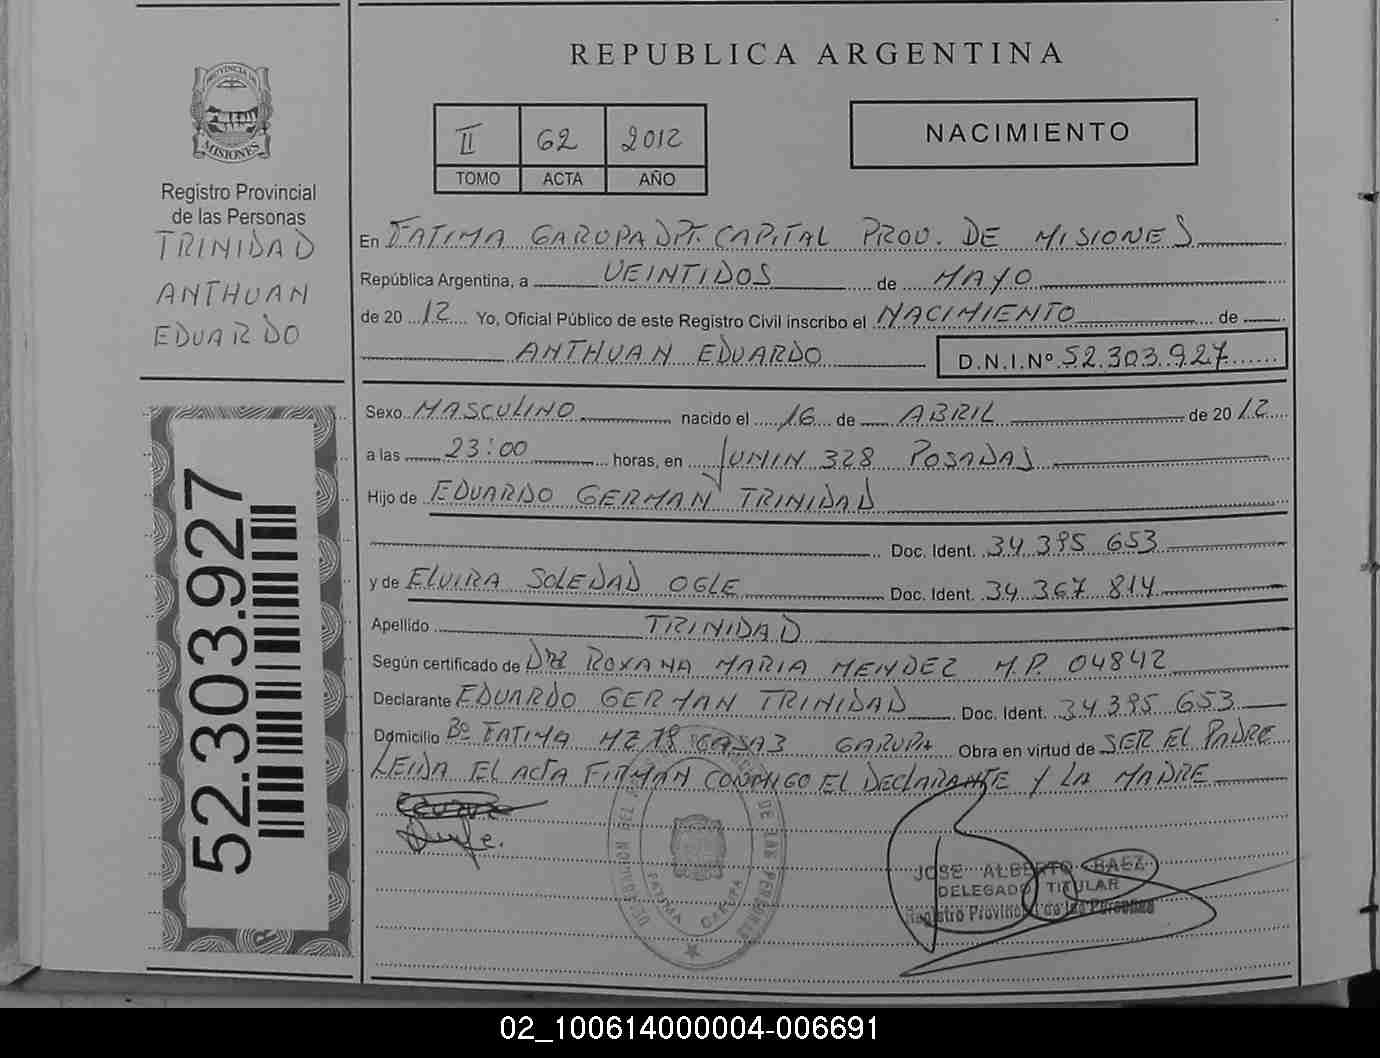 REPUBLICA ARGENTINA
PROVINCIA DE
MISIONES
Registro Provincial
de las Personas
TRINIDAD
ANTHUAN
EDUARDO
II 62 2012
TOMO ACTA AÑO
NACIMIENTO
En FATIMA GARUPA DPT. CAPITAL PROV. DE MISIONES
República Argentina, a VEINTIDOS de MAYO
de 20 12 Yo, Oficial Público de este Registro Civil inscribo el NACIMIENTO de
ANTHUAN EDUARDO D.N.I.Nº 52.303.927
Sexo MASCULINO nacido el 16 de ABRIL de 20 12
a las 23:00 horas, en JUNIN 328 POSADAS
Hijo de EDUARDO GERMAN TRINIDAD
Doc. Ident. 34 395 653
y de ELVIRA SOLEDAD OGLE Doc. Ident. 34 367 814
Apellido TRINIDAD
Según certificado de DRA ROXANA MARIA MENDEZ M.P. 04842
Declarante EDUARDO GERMAN TRINIDAD Doc. Ident. 34 395 653
Domicilio Bº FATIMA MZ 78 CASA 3 GARUPA Obra en virtud de SER EL PADRE
LEIDA EL ACTA FIRMAN CONMIGO EL DECLARANTE Y LA MADRE
52.303.927
DE LAS PERSONAS
FATIMA GARUPA
JOSE ALBERTO BAEZ
DELEGADO TITULAR
Registro Provincial de las Personas
02_100614000004-006691